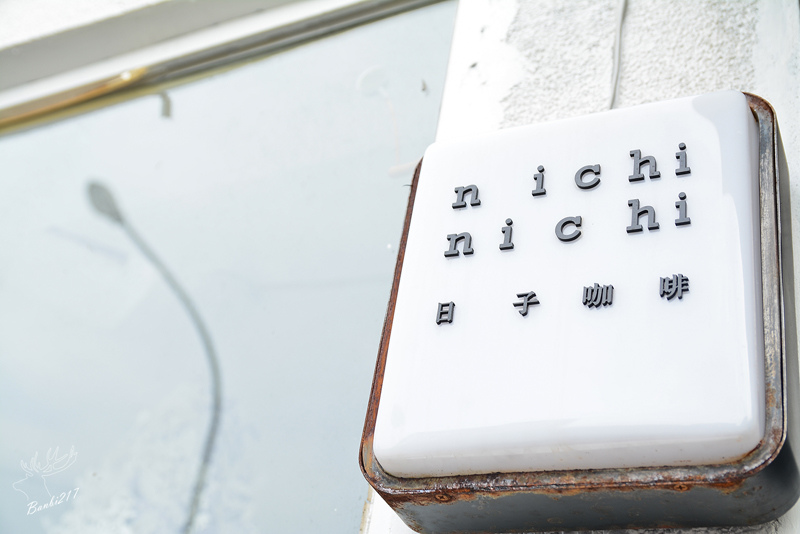 nichi
nichi
日子咖啡
Banbi217